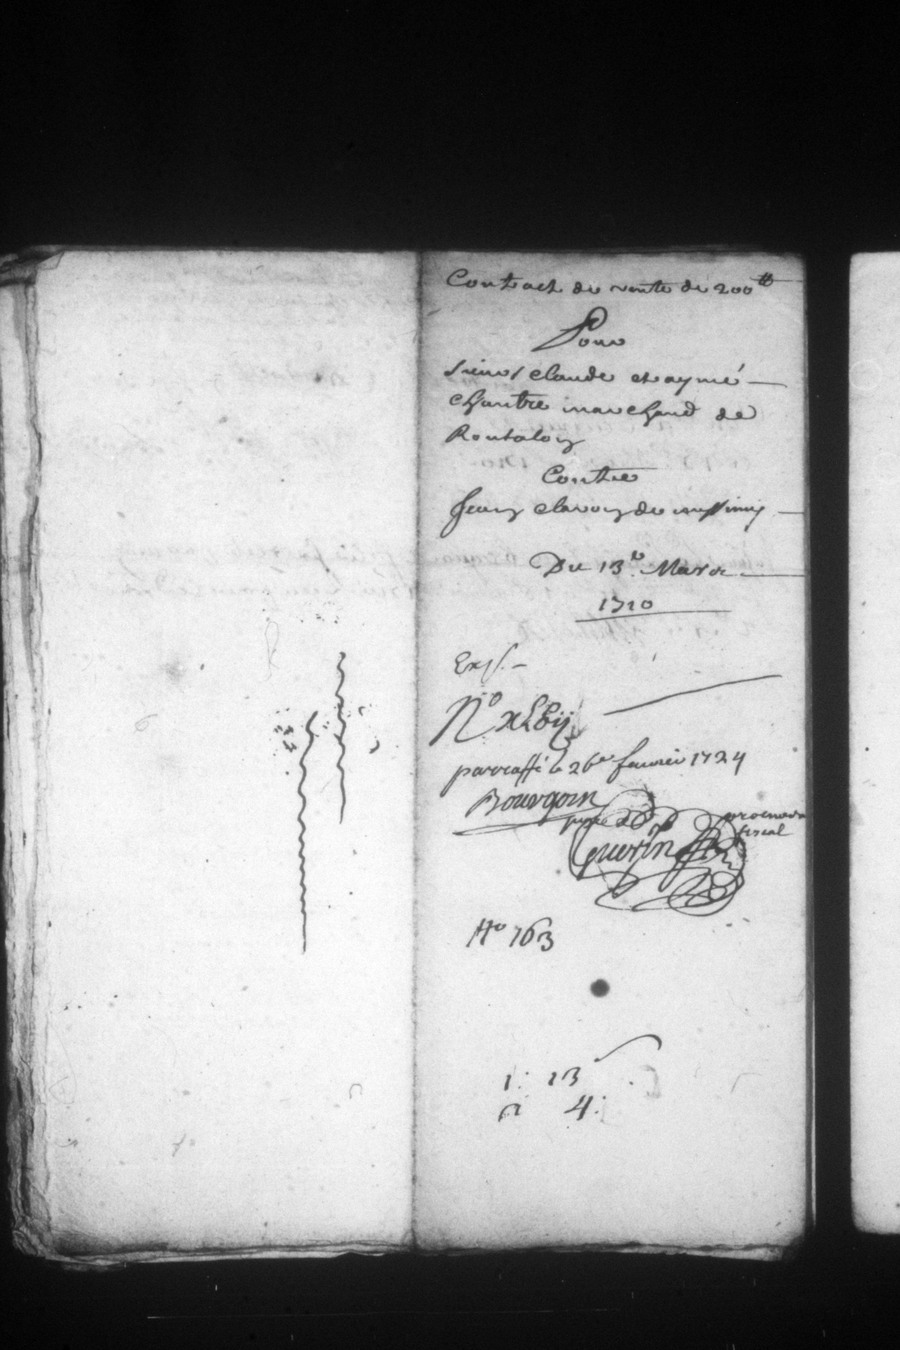 Contract de vente de 200 tt
Pour
sieurs claude et aymé
chantre marchand de
Rontalon
Contre
Jean clavoz de messimy
Du 13e. Mars
1710
Exp.
No xLbij
parraffé le 26e feurier 1724
Bourgoin
juge procureur
fiscal
Guerin
No 163
1: 13
4: